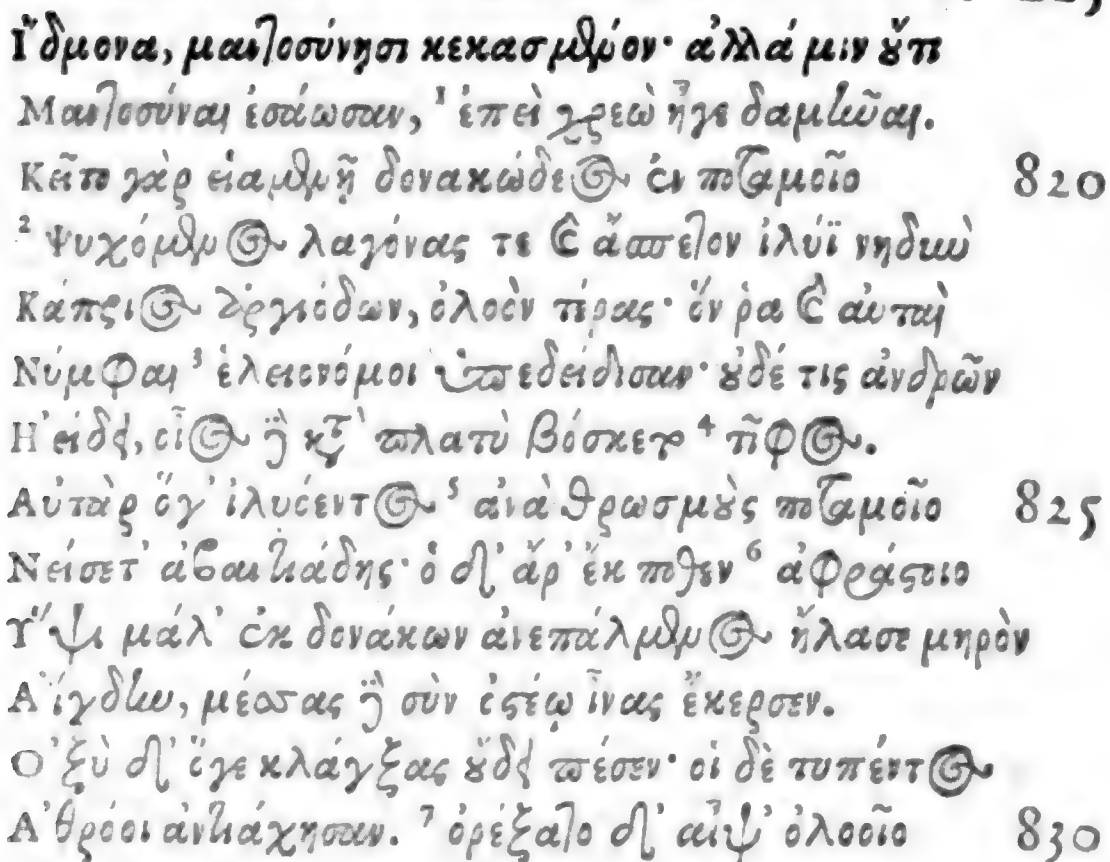 Ἴδμονα, μαντοσύνησι κεκασμένον· ἀλλά μιν οὔτι
Μαντοσύναι ἐσάωσαν, ¹ ἐπεὶ χρεὼ ἦγε δαμῆναι.
Κεῖτο γὰρ εἱαμενῇ δονακώδεος ἐν ποταμοῖο 820
² Ψυχόμενος λαγόνας τε καὶ ἄσπετον ἰλύϊ νηδὺν
Κάπριος ἀργιόδων, ὀλοὸν τέρας· ὅν ῥα καὶ αὐταὶ
Νύμφαι ³ ἑλειονόμοι ὑπεδείδισαν· οὐδέ τις ἀνδρῶν
Ἠείδει, οἶος δὲ κατὰ πλατὺ βόσκετο ⁴ τῖφος.
Αὐτὰρ ὅγ' ἰλυόεντος ⁵ ἀνὰ θρωσμοὺς ποταμοῖο 825
Νείσετ' ἀβαντιάδης· ὁ δ' ἄρ' ἔκ ποθεν ⁶ ἀφράστοιο
Ὕψι μάλ' ἐκ δονάκων ἀνεπάλμενος ἤλασε μηρὸν
Ἀΐγδην, μέσσας δὲ σὺν ὀστέῳ ἶνας ἔκερσεν.
Ὀξὺ δ' ὅγε κλάγξας οὔδει πέσεν· οἱ δὲ τυπέντος
Ἀθρόοι ἀντιάχησαν. ⁷ ὀρέξατο δ' αἶψ' ὀλοοῖο 830